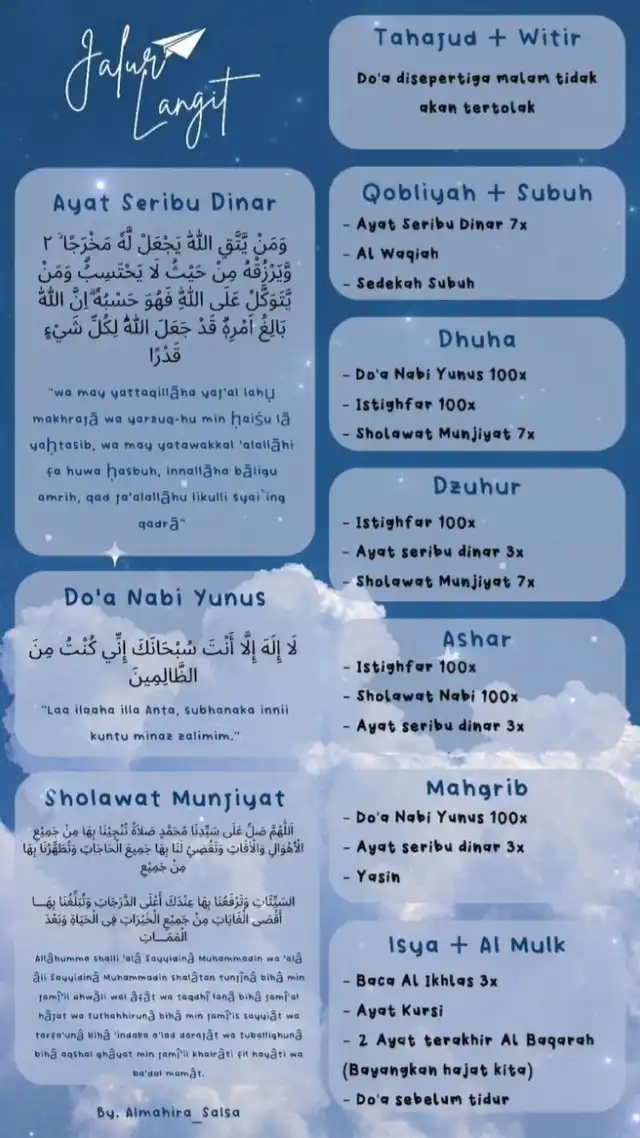 Jalur
Langit
Ayat Seribu Dinar
وَمَنْ يَّتَّقِ اللّٰهَ يَجْعَلْ لَّهٗ مَخْرَجًاۙ ٢
وَّيَرْزُقْهُ مِنْ حَيْثُ لَا يَحْتَسِبُۗ وَمَنْ
يَّتَوَكَّلْ عَلَى اللّٰهِ فَهُوَ حَسْبُهٗۗ اِنَّ اللّٰهَ
بَالِغُ اَمْرِهٖۗ قَدْ جَعَلَ اللّٰهُ لِكُلِّ شَيْءٍ
قَدْرًا
"wa may yattaqillāha yaj'al lahụ
makhrajā wa yarzuq-hu min ḥaiṡu lā
yaḥtasib, wa may yatawakkal 'alallāhi
fa huwa ḥasbuh, innallāha bāligu
amrih, qad ja'alallāhu likulli syai`ing
qadrā"
Do'a Nabi Yunus
لَا إِلَهَ إِلَّا أَنْتَ سُبْحَانَكَ إِنِّي كُنْتُ مِنَ
الظَّالِمِينَ
"Laa ilaaha illa Anta, subhanaka innii
kuntu minaz zalimim."
Sholawat Munjiyat
اَللّٰهُمَّ صَلِّ عَلَى سَيِّدِنَا مُحَمَّدٍ صَلاَةً تُنْجِيْنَا بِهَا مِنْ جَمِيْعِ
الْأَهْوَالِ وَالْآفَاتِ وَتَقْضِيْ لَنَا بِهَا جَمِيعَ الْحَاجَاتِ وَتُطَهِّرُنَا بِهَا
مِنْ جَمِيْعِ
السَّيِّئَاتِ وَتَرْفَعُنَا بِهَا عِنْدَكَ أَعْلَى الدَّرَجَاتِ وَتُبَلِّغُنَا بِهَــا
أَقْصَى الْغَايَاتِ مِنْ جَمِيْعِ الْخَيْرَاتِ فِى الْحَيَاةِ وَبَعْدَ
الْمَمَــاتِ
Allâhumma shalli 'alâ Sayyidinâ Muhammadin wa 'alâ
âli Sayyidinâ Muhammadin shalâtan tunjînâ bihâ min
jamî'il ahwâli wal âfât wa taqdhî lanâ bihâ jamî'al
hâjat wa tuthahhirunâ bihâ min jamî'is sayyiât wa
tarfa'unâ bihâ 'indaka a'lad darajât wa tuballighunâ
bihâ aqshal ghâyat min jamî'il khairâti fil hayâti wa
ba'dal mamât.
By. Almahira_Salsa
Tahajud + Witir
Do'a disepertiga malam tidak
akan tertolak
Qobliyah + Subuh
- Ayat Seribu Dinar 7x
- Al Waqiah
- Sedekah Subuh
Dhuha
- Do'a Nabi Yunus 100x
- Istighfar 100x
- Sholawat Munjiyat 7x
Dzuhur
- Istighfar 100x
- Ayat seribu dinar 3x
- Sholawat Munjiyat 7x
Ashar
- Istighfar 100x
- Sholawat Nabi 100x
- Ayat seribu dinar 3x
Mahgrib
- Do'a Nabi Yunus 100x
- Ayat seribu dinar 3x
- Yasin
Isya + Al Mulk
- Baca Al Ikhlas 3x
- Ayat Kursi
- 2 Ayat terakhir Al Baqarah
(Bayangkan hajat kita)
- Do'a sebelum tidur